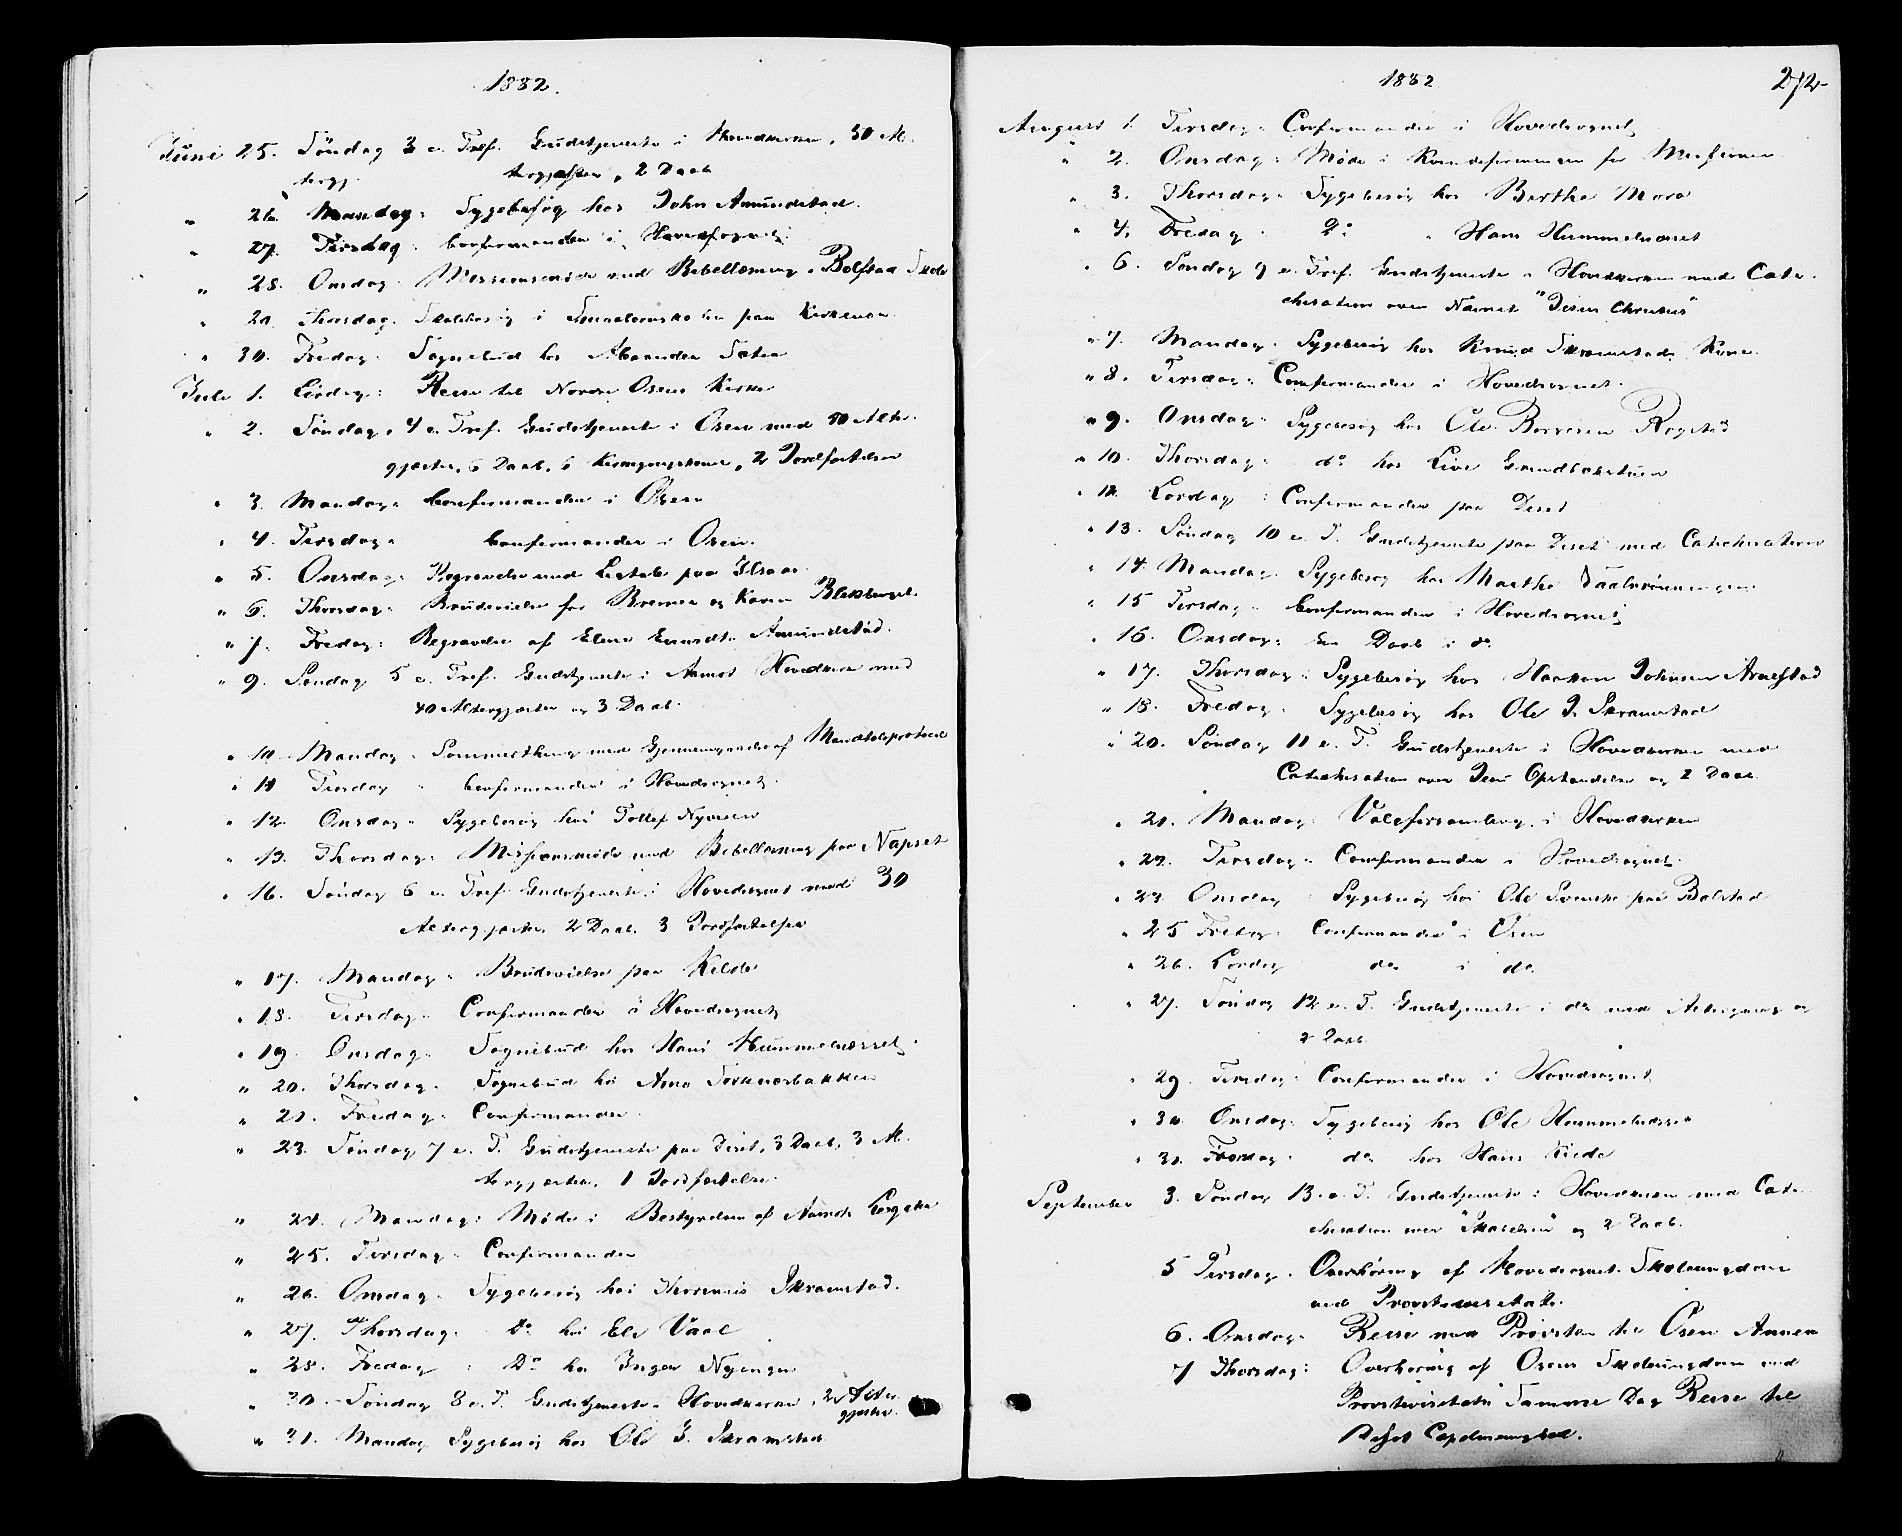 1882.
Juni 25. Söndag 3 e. Tref. Gudstjeneste i Hovedkirken, 50 Al-
tergj. tergjæster, 2 Daab
" 26. Mandag: Sygebesøg hos John Amundstad.
" 27. Tirsdag: Confirmander i Hovedsognet.
" 28. Onsdag: Missionsmøde med Bibellæsning i Bolstad Skole
" 29. Thorsdag. Skolebesøg i paa Kirkemoen.
" 30. Fredag: Sognebud hos Sætre
Juli 1. Lördag: Reise til Nordre Osens Kirke
" 2. Söndag, 4 e. Tref. Gudstjeneste i Osen med 50 Alter-
gjæster, 6 Daab, 6 2 Jordfæstelser
" 3. Mandag: Confirmander i Osen
" 4. Tirsdag: Confirmander i Osen.
" 5. Onsdag: med paa
" 6. Thorsdag: Brudevielse for og Karen
" 7. Fredag: Begravelse af Elene Amundstad.
" 9. Søndag 5 e. Tref. Gudstjeneste i Aamot Hovedkirke med
40 Altergjæster og 3 Daab.
" 10 Mandag: Sommerthing med Gjennemgaaelse af Mandtalsprotocol
" 11 Tirsdag " Confirmander i Hovedsognet.
" 12. Onsdag: Sygebesøg hos Tollef Nyveien
" 13. Thorsdag: Missionsmøde med Bibellæsning paa Napset
" 16. Søndag 6 e. Tref. Gudstjeneste i Hovedsognet med 30
Altergjæster, 2 Daab, 3 Jordfæstelser
" 17. Mandag: Brudevielse paa Kilde
" 18. Tirsdag: Confirmander i Hovedsognet
" 19. Onsdag: Sognebud hos Hans Hummelnæsset.
" 20. Thorsdag: Sognebud hos Arne
" 21. Fredag: Confirmander.
" 23. Søndag 7 e. T. Gudstjeneste paa Deset, 3 Daab, 3 Al-
tergjæster, 1 Jordfæstelse.
" 24. Mandag: Møde i Bestyrelsen af Aamots
" 25. Tirsdag: Confirmander
" 26. Onsdag: Sygebesøg hos Skramstad.
" 27. Thorsdag: Do hos Eli Vaal
" 28. Fredag: Do hos Inger
" 30. Søndag 8 e. T. Gudstjeneste i Hovedkirken, 2 Alter-
gjæster.
" 31. Mandag Sygebesøg hos Ole J. Skramstad
1882
272
August 1. Tirsdag: Confirmander i Hovedsognet
" 2. Onsdag: Møde i Kvindeforeningen for Missionen
" 3. Thorsdag: Sygebesøg hos Berthe Mora
" 4. Fredag: Do " Hans Hummelnæset
" 6. Søndag 9 e. Tref. Gudstjeneste i Hovedkirken med Cate-
chisation over Navnet "Jesus Christus"
" 7. Mandag: Sygebesøg hos Knud Skramstads Kone.
" 8. Tirsdag: Confirmander i Hovedsognet.
" 9. Onsdag: Sygebesøg hos Ole Børresen Rogstad
" 10. Thorsdag: do hos Live
" 12. Lørdag: Confirmander paa Deset
" 13. Søndag 10 e. T. Gudstjeneste paa Deset med Catechisation
" 14. Mandag: Sygebesøg hos Marthe
" 15 Tirsdag: Confirmander i Hovedsognet
" 16. Onsdag: En Daab i do
" 17. Thorsdag: Sygebesøg hos Haakon Johnsen Arnestad
" 18. Fredag: Sygebesøg hos Ole J. Skramstad
" 20. Søndag 11 e. T. Gudstjeneste i Hovedkirken med
Catechisation over Jesu Opstandelse og 2 Daab.
" 21. Mandag: Valgforsamling i Hovedkirken
" 22. Tirsdag: Confirmander i Hovedsognet.
" 23. Onsdag: Sygebesøg hos Ole Svenske paa Bolstad
" 25 Fredag: Confirmander i Osen
" 26. Lørdag do i do
" 27. Søndag 12 e. T. Gudstjeneste i do med Altergang og
2 Daab.
" 29. Tirsdag: Confirmander i Hovedsognet
" 30. Onsdag: Sygebesøg hos Ole
" 31. Thorsdag: do hos Hans Kilde
September 3. Søndag 13. e. T. Gudstjeneste i Hovedkirken med Cate-
chisation over "Skabelsen" og 2 Daab.
5 Tirsdag. Overhøring af Hovedsognets Skoleungdom
ved Provstevisitats.
6. Onsdag: Reise med Provsten til Osen Annex
7 Thorsdag: Overhøring af Osens Skoleungdom ved
Provstevisitats. Samme Dag Reise til